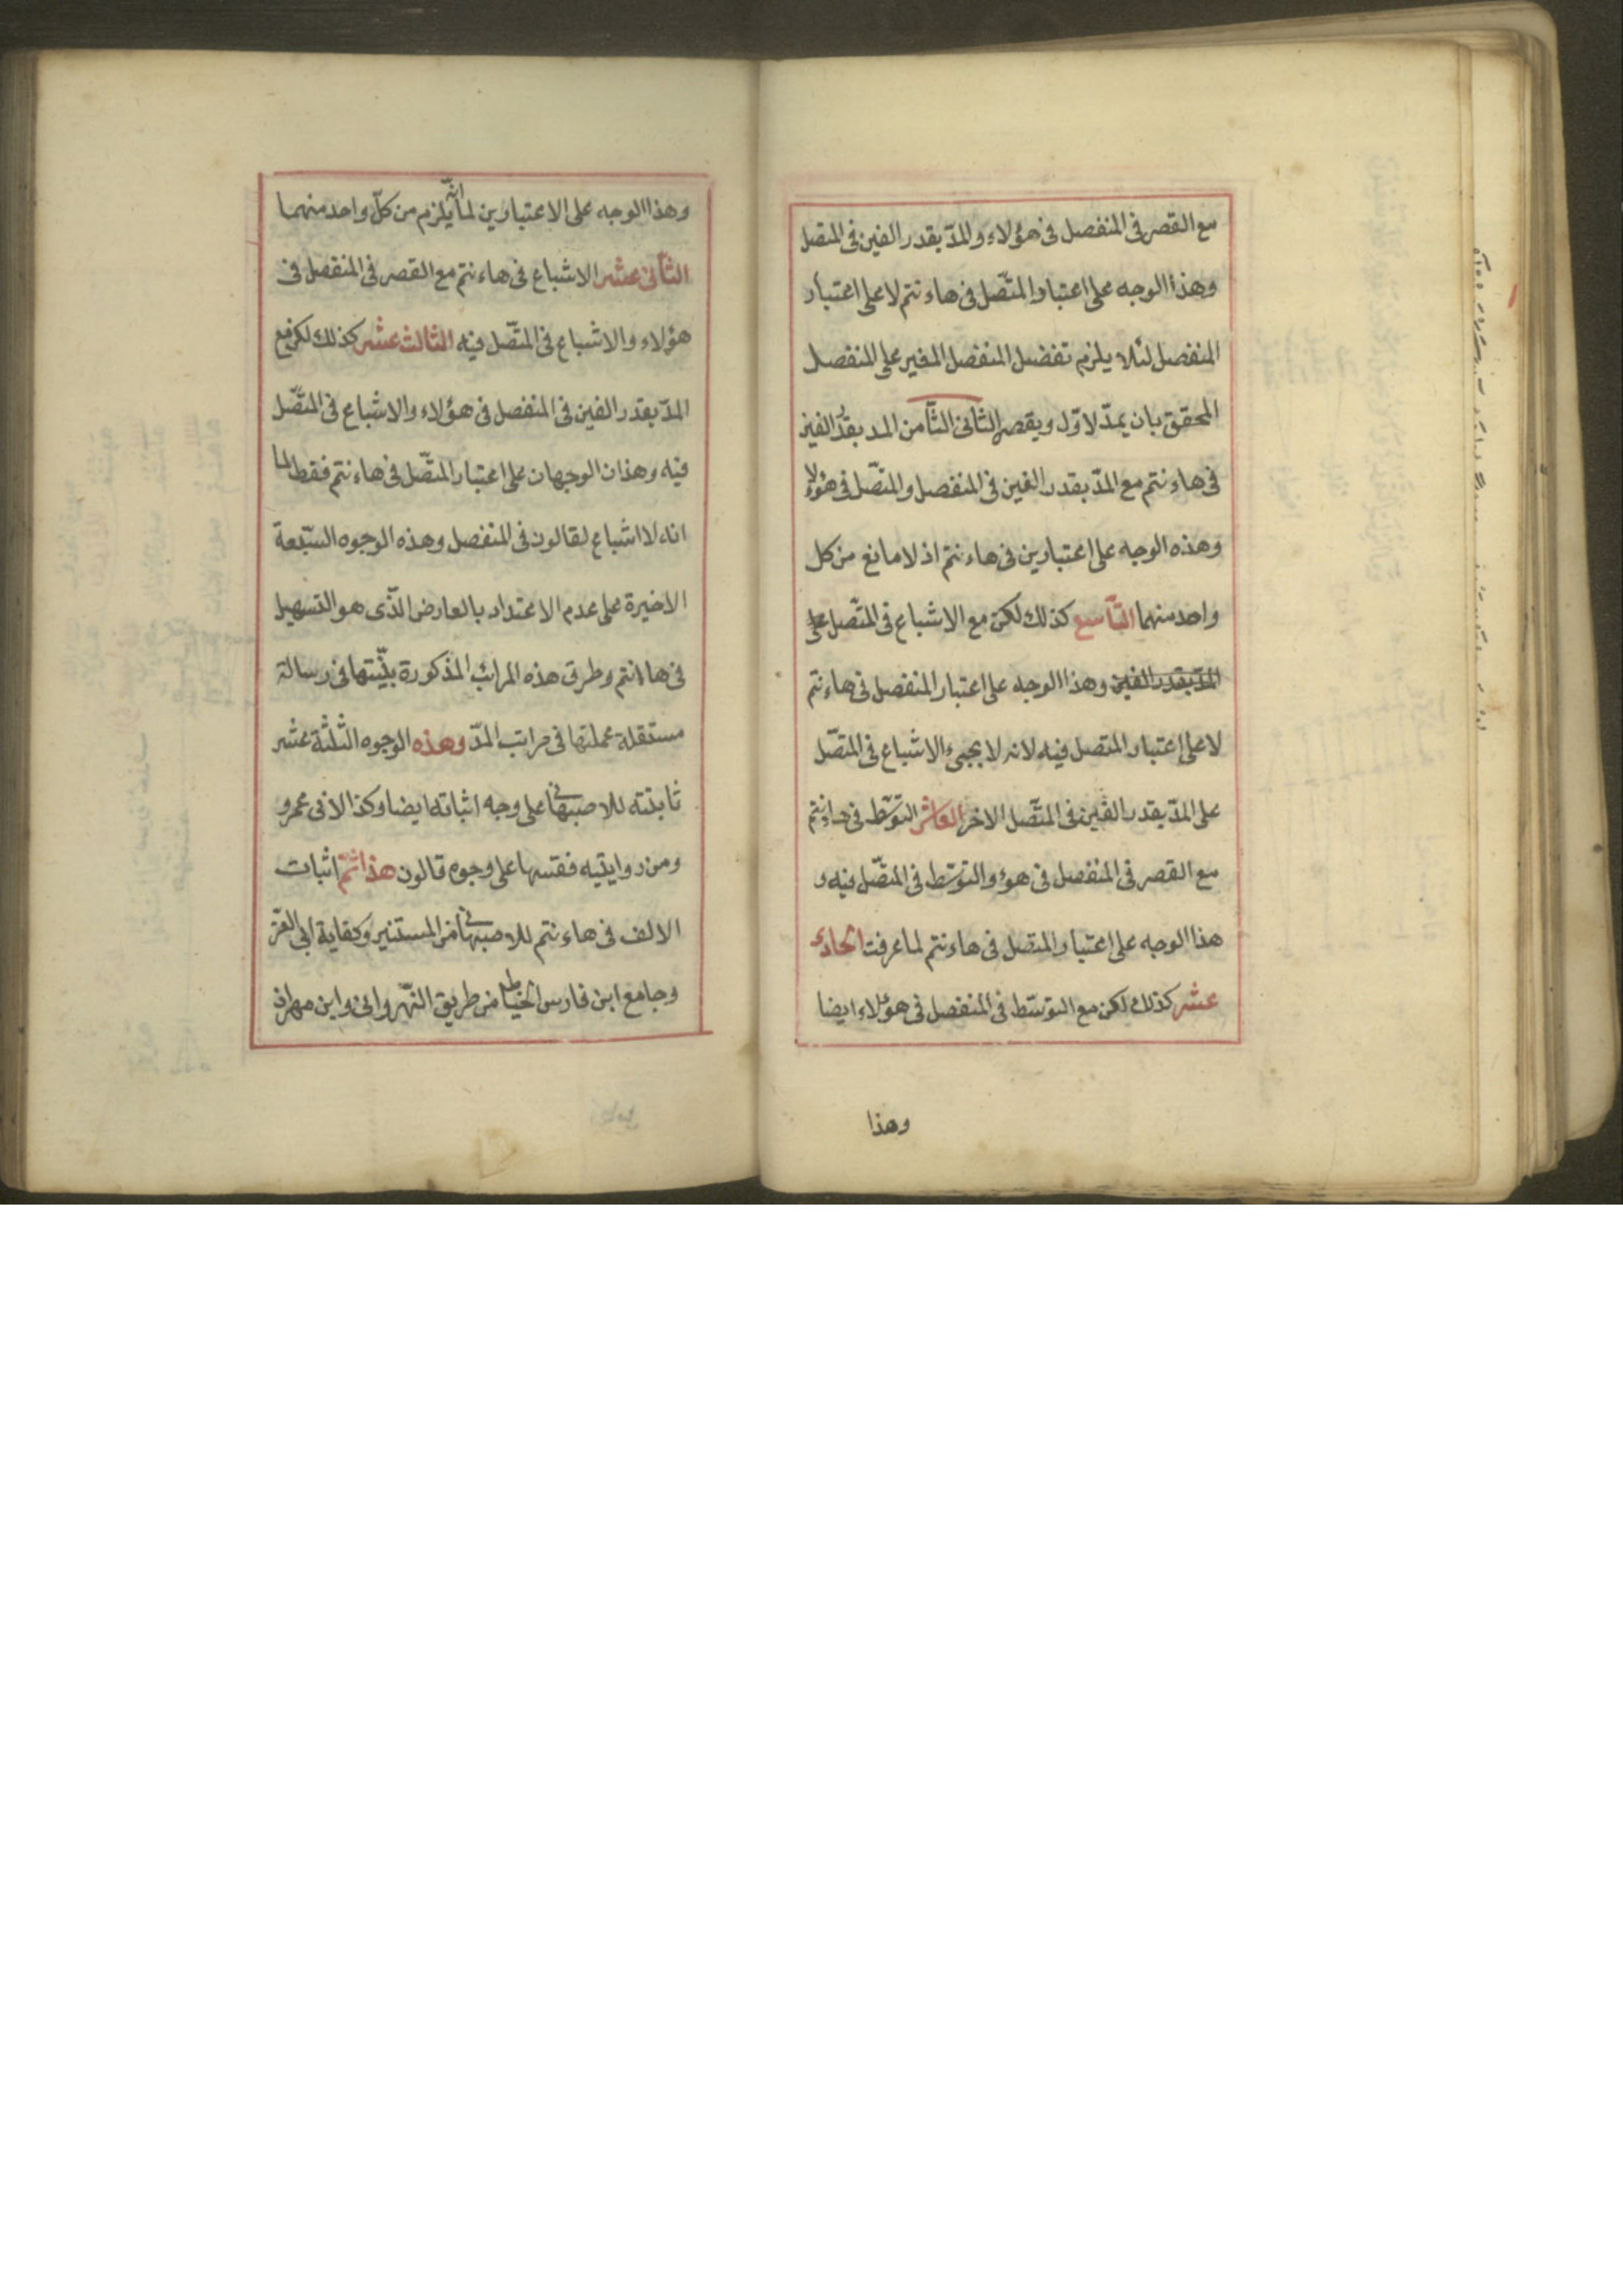 مع القصر فى المنفصل فى هؤلاء والمدّ بقدر الفين فى المتصل
وهذا الوجه على اعتبار المتّصل فى هاءنتم لا على اعتبار
المنفصل لئلا يلزم تفضيل المنفصل المغير على المنفصل
المحقق بان يمدّ لاوّل ويقصر الثانى الثّامن المد بقدر الفين
فى هاءنتم مع المدّ بقدر الفين فى المنفصل والمتّصل فى هؤلاء
وهذه الوجه على اعتبارين فى هاءنتم اذ لا مانع من كل
واحد منهما التّاسع كذلك لكن مع الاشباع فى المتّصل على
المدّ بقدر الفين وهذا الوجه على اعتبار المنفصل فى هاءنتم
لا على اعتبار المتصل فيه لانه لا يجىء الاشباع فى المتّصل
على المدّ بقدر الفين فى المتّصل الاخر العاشر التوسّط فى هاءنتم
مع القصر فى المنفصل فى هؤ والتوسّط فى المتّصل فيه و
هذا الوجه على اعتبار المتصل فى هاءنتم لما عرفت الحادى
عشر كذلك لكن مع التوسّط فى المنفصل فى هؤلاء ايضا
وهذا
وهذا الوجه على الاعتبارين لما انّه يلزم من كلّ واحد منهما
الثانى عشر الاشباع فى هاءنتم مع القصر فى المنفصل فى
هؤلاء والاشباع فى المتّصل فيه الثالث عشر كذلك لكن مع
المدّ بقدر الفين فى المنفصل فى هؤلاء والاشباع فى المتّصل
فيه وهذان الوجهان على اعتبار المتّصل فى هاءنتم فقط لما
انه لا اشباع لقالون فى المنفصل وهذه الوجوه السّبعة
الاخيرة على عدم الاعتداد بالعارض الذّى هو التسهيل
فى هاانتم وطرق هذه المراتب المذكورة بيّنتها فى رسالة
مستقلة عملتها فى مراتب المدّ وهذه الوجوه الثلثة عشر
ثابتة للاصبهانى على وجه اثباته ايضا وكذا لابى عمرو
ومن روايتيه فقسها على وجوه قالون هذا ثمّ اثبات
الالف فى هاءنتم للاصبهانى من المستنير وكفاية ابى العزّ
وجامع ابن فارس الخياط من طريق النّهروانى وابن مهران